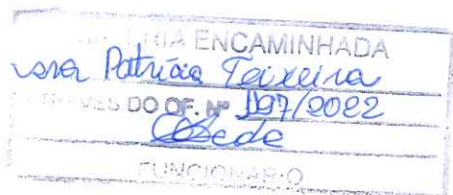 ENCAMINHADA
Patrícia Teixeira
DO OF. Nº 197/2022
FUNCIONÁRIO